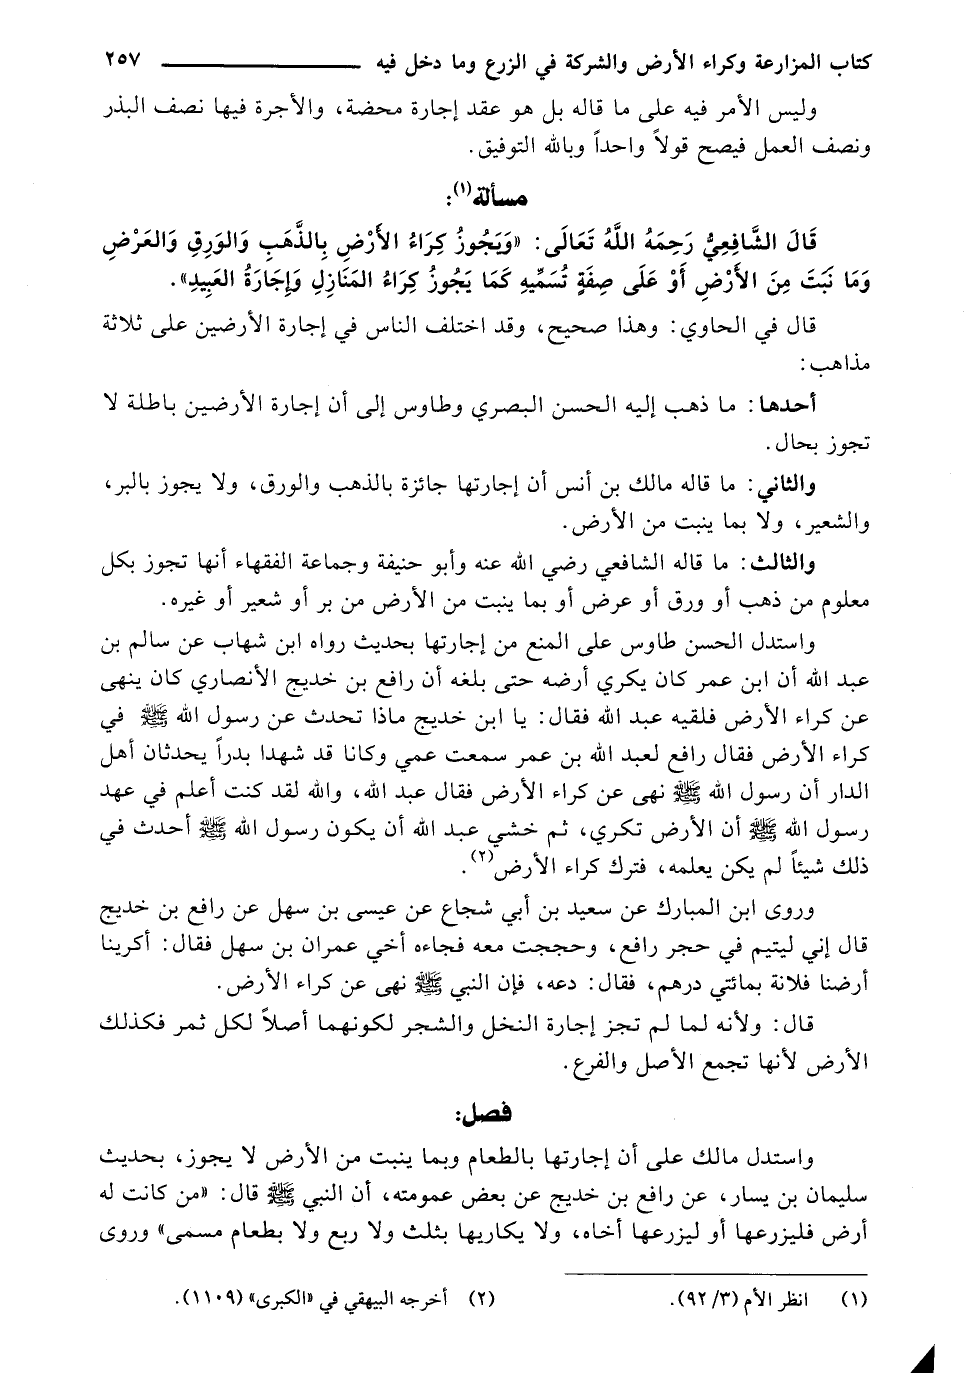 كتاب المزارعة وكراء الأرض والشركة في الزرع وما دخل فيه ٢٥٧
وليس الأمر فيه على ما قاله بل هو عقد إجارة محضة، والأجرة فيها نصف البذر
ونصف العمل فيصح قولاً واحداً وبالله التوفيق.
مسألة(١):
قَالَ الشَّافِعِيُّ رَحِمَهُ اللَّهُ تَعَالَى: «وَيَجُوزُ كِرَاءُ الأَرْضِ بِالذَّهَبِ وَالوَرِقِ وَالعَرْضِ
وَمَا نَبَتَ مِنَ الأَرْضِ أَوْ عَلَى صِفَةٍ تُسَمِّيهِ كَمَا يَجُوزُ كِرَاءُ المَنَازِلِ وَإِجَارَةُ العَبِيدِ».
قال في الحاوي: وهذا صحيح، وقد اختلف الناس في إجارة الأرضين على ثلاثة
مذاهب:
أحدها: ما ذهب إليه الحسن البصري وطاوس إلى أن إجارة الأرضين باطلة لا
تجوز بحال.
والثاني: ما قاله مالك بن أنس أن إجارتها جائزة بالذهب والورق، ولا يجوز بالبر،
والشعير، ولا بما ينبت من الأرض.
والثالث: ما قاله الشافعي رضي الله عنه وأبو حنيفة وجماعة الفقهاء أنها تجوز بكل
معلوم من ذهب أو ورق أو عرض أو بما ينبت من الأرض من بر أو شعير أو غيره.
واستدل الحسن طاوس على المنع من إجارتها بحديث رواه ابن شهاب عن سالم بن
عبد الله أن ابن عمر كان يكري أرضه حتى بلغه أن رافع بن خديج الأنصاري كان ينهى
عن كراء الأرض فلقيه عبد الله فقال: يا ابن خديج ماذا تحدث عن رسول الله ﷺ في
كراء الأرض فقال رافع لعبد الله بن عمر سمعت عمي وكانا قد شهدا بدراً يحدثان أهل
الدار أن رسول الله ﷺ نهى عن كراء الأرض فقال عبد الله، والله لقد كنت أعلم في عهد
رسول الله ﷺ أن الأرض تكري، ثم خشي عبد الله أن يكون رسول الله ﷺ أحدث في
ذلك شيئاً لم يكن يعلمه، فترك كراء الأرض(٢).
وروى ابن المبارك عن سعيد بن أبي شجاع عن عيسى بن سهل عن رافع بن خديج
قال إني ليتيم في حجر رافع، وحججت معه فجاءه أخي عمران بن سهل فقال: أكرينا
أرضنا فلانة بمائتي درهم، فقال: دعه، فإن النبي ﷺ نهى عن كراء الأرض.
قال: ولأنه لما لم تجز إجارة النخل والشجر لكونهما أصلاً لكل ثمر فكذلك
الأرض لأنها تجمع الأصل والفرع.
فصل:
واستدل مالك على أن إجارتها بالطعام وبما ينبت من الأرض لا يجوز، بحديث
سليمان بن يسار، عن رافع بن خديج عن بعض عمومته، أن النبي ﷺ قال: «من كانت له
أرض فليزرعها أو ليزرعها أخاه، ولا يكاريها بثلث ولا ربع ولا بطعام مسمى» وروى
(١) انظر الأم (٣/ ٩٢). (٢) أخرجه البيهقي في «الكبرى» (١١٠٩).